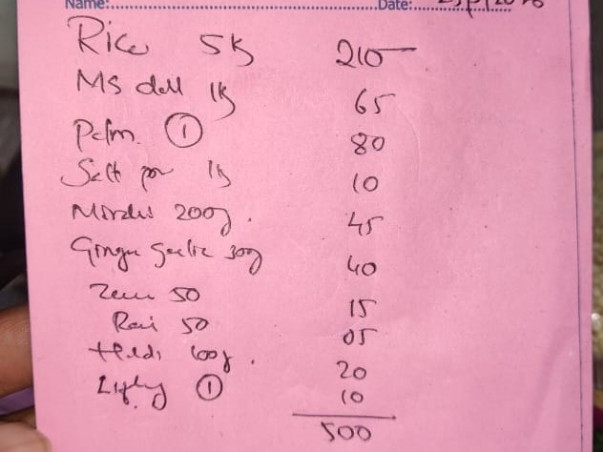 Name: Date:
Rice 5K 210
MS dall 1K 65
Palm. ① 80
Salt pr 1K 10
Mirchi 200g. 45
Ginger Garlic 30g 40
Zeera 50 15
Rai 50 05
Haldi 100g. 20
① 10
500